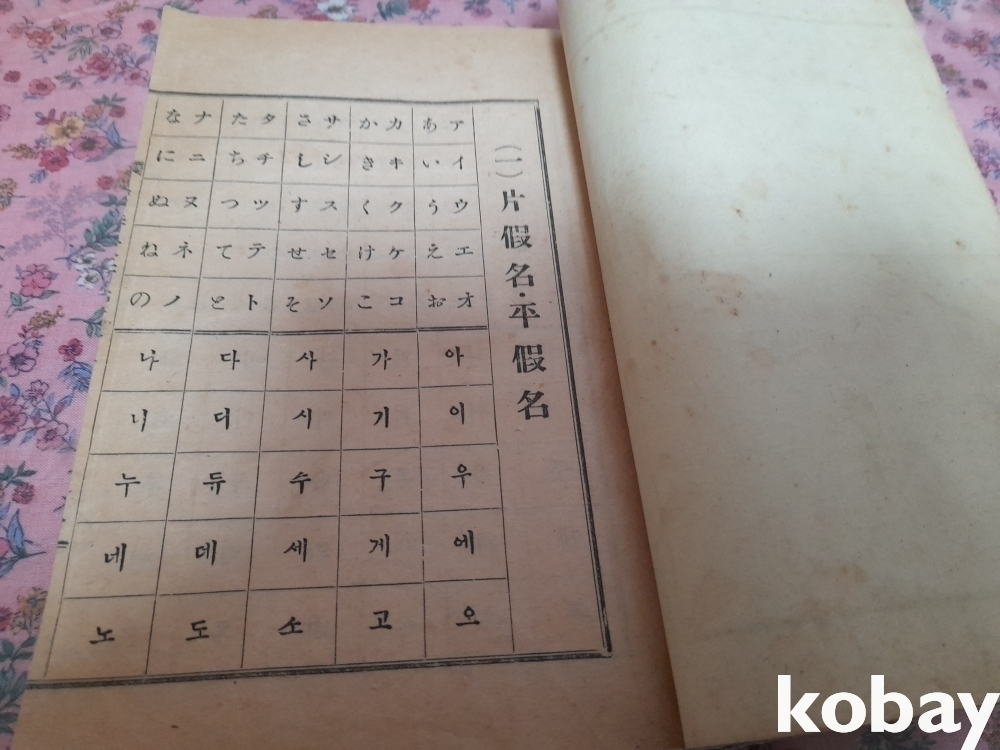 (一) 片假名・平假名
ア イ ウ エ オ
あ い う え お
아 이 우 에 오
カ キ ク ケ コ
か き く け こ
가 기 구 게 고
サ シ ス セ ソ
さ し す せ そ
사 시 수 세 소
タ チ ツ テ ト
た ち つ て と
다 디 듀 데 도
ナ ニ ヌ ネ ノ
な に ぬ ね の
나 니 누 네 노
kobay